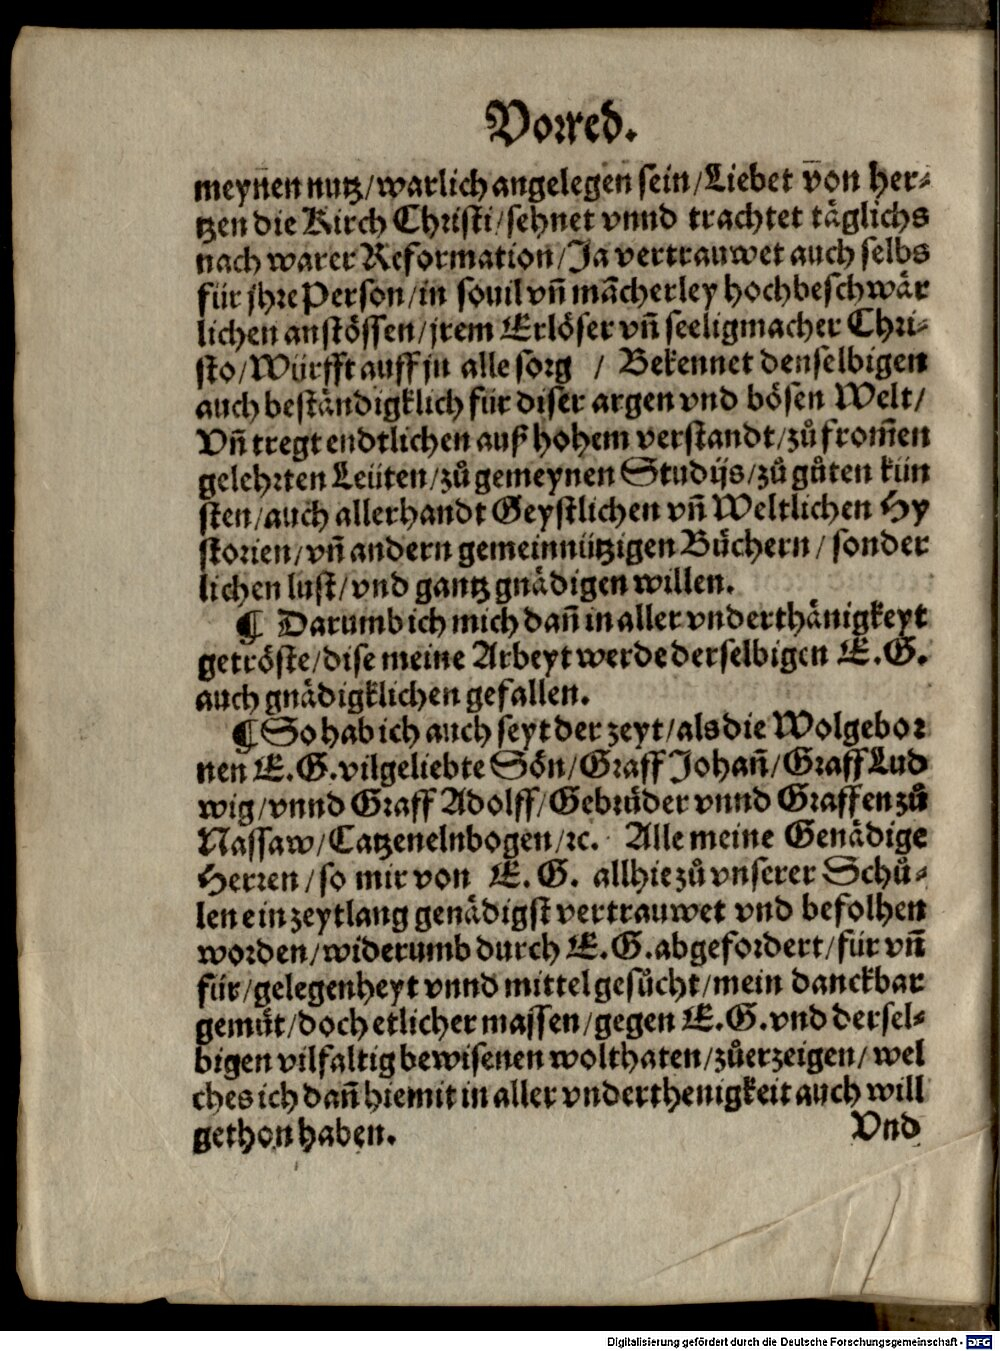 Vorred.
meynen nutz/warlich angelegen sein/Liebet von her-
tzen die Kirch Christi/sehnet vnnd trachtet täglichs
nach warer Reformation/Ja vertrauwet auch selbs
für jhre Person/in souil vñ mãcherley hochbeschwär
lichen anstössen/jrem Erlöser vñ seeligmacher Chri-
sto/Würfft auff jn alle sorg / Bekennet denselbigen
auch beständigklich für diser argen vnd bösen Welt/
Vñ tregt endtlichen auß hohem verstandt/zů from̃en
gelehrten Leüten/zů gemeynen Studijs/zů gůten kün
sten/auch allerhandt Geystlichen vñ Weltlichen Hy
storien/vñ andern gemeinnützigen Bůchern/sonder
lichen lust/vnd gantz gnädigen willen.
¶ Darumb ich mich dañ in aller vnderthänigkeyt
getröste/dise meine Arbeyt werde derselbigen E.G.
auch gnädigklichen gefallen.
¶ So hab ich auch seyt der zeyt/als die Wolgebor
nen E.G.vilgeliebte Sön/Graff Johañ/Graff Lud
wig/vnnd Graff Adolff/Gebrüder vnnd Graffen zů
Nassaw/Catzenelnbogen/ꝛc. Alle meine Genädige
Herren/so mir von E.G. allhie zů vnserer Schů-
len ein zeytlang genädigst vertrauwet vnd befolhen
worden/widerumb durch E.G.abgefordert/für vñ
für/gelegenheyt vnnd mittel gesůcht/mein danckbar
gemüt/doch etlicher massen/gegen E.G.vnd dersel-
bigen vilfaltig bewisenen wolthaten/zůerzeigen/wel
ches ich dañ hiemit in aller vnderthenigkeit auch will
gethon haben.
Vnd
Digitalisierung gefördert durch die Deutsche Forschungsgemeinschaft - DFG